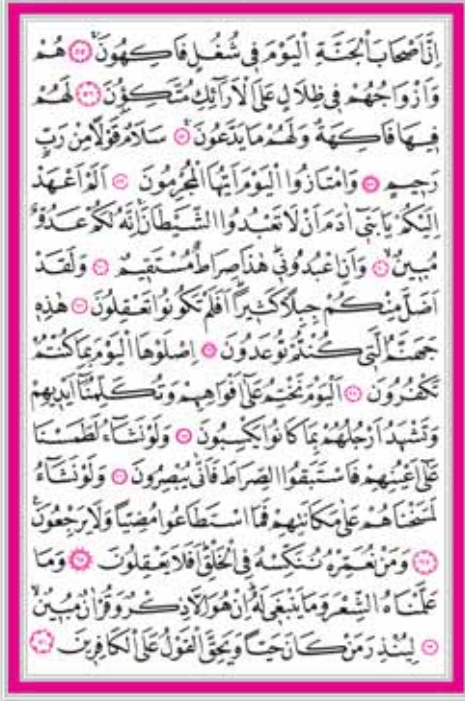 اِنَّ اَصْحَابَ الْجَنَّةِ الْيَوْمَ فٖى شُغُلٍ فَاكِهُونَ ﴿٥٥﴾ هُمْ
وَاَزْوَاجُهُمْ فٖى ظِلَالٍ عَلَى الْاَرَآئِكِ مُتَّكِؤُنَ ﴿٥٦﴾ لَهُمْ
فٖيهَا فَاكِهَةٌ وَلَهُمْ مَا يَدَّعُونَ ﴿٥٧﴾ سَلَامٌ قَوْلًا مِنْ رَبٍّ
رَحٖيمٍ ﴿٥٨﴾ وَامْتَازُوا الْيَوْمَ اَيُّهَا الْمُجْرِمُونَ ﴿٥٩﴾ اَلَمْ اَعْهَدْ
اِلَيْكُمْ يَا بَنٖٓى اٰدَمَ اَنْ لَا تَعْبُدُوا الشَّيْطَانَۚ اِنَّهُ لَكُمْ عَدُوٌّ
مُبٖينٌ ﴿٦٠﴾ وَاَنِ اعْبُدُونٖىؕ هٰذَا صِرَاطٌ مُسْتَقٖيمٌ ﴿٦١﴾ وَلَقَدْ
اَضَلَّ مِنْكُمْ جِبِلًّا كَثٖيرًاؕ اَفَلَمْ تَكُونُوا تَعْقِلُونَ ﴿٦٢﴾ هٰذِهٖ
جَهَنَّمُ الَّتٖى كُنْتُمْ تُوعَدُونَ ﴿٦٣﴾ اِصْلَوْهَا الْيَوْمَ بِمَا كُنْتُمْ
تَكْفُرُونَ ﴿٦٤﴾ اَلْيَوْمَ نَخْتِمُ عَلٰٓى اَفْوَاهِهِمْ وَتُكَلِّمُنَٓا اَيْدٖيهِمْ
وَتَشْهَدُ اَرْجُلُهُمْ بِمَا كَانُوا يَكْسِبُونَ ﴿٦٥﴾ وَلَوْ نَشَٓاءُ لَطَمَسْنَا
عَلٰٓى اَعْيُنِهِمْ فَاسْتَبَقُوا الصِّرَاطَ فَاَنّٰى يُبْصِرُونَ ﴿٦٦﴾ وَلَوْ نَشَٓاءُ
لَمَسَخْنَاهُمْ عَلٰى مَكَانَتِهِمْ فَمَا اسْتَطَاعُوا مُضِيًّا وَلَا يَرْجِعُونَ
﴿٦٧﴾ وَمَنْ نُعَمِّرْهُ نُنَكِّسْهُ فِى الْخَلْقِؕ اَفَلَا يَعْقِلُونَ ﴿٦٨﴾ وَمَا
عَلَّمْنَاهُ الشِّعْرَ وَمَا يَنْبَغٖى لَهُؕ اِنْ هُوَ اِلَّا ذِكْرٌ وَقُرْاٰنٌ مُبٖينٌۙ
﴿٦٩﴾ لِيُنْذِرَ مَنْ كَانَ حَيًّا وَيَحِقَّ الْقَوْلُ عَلَى الْكَافِرٖينَ ﴿٧٠﴾